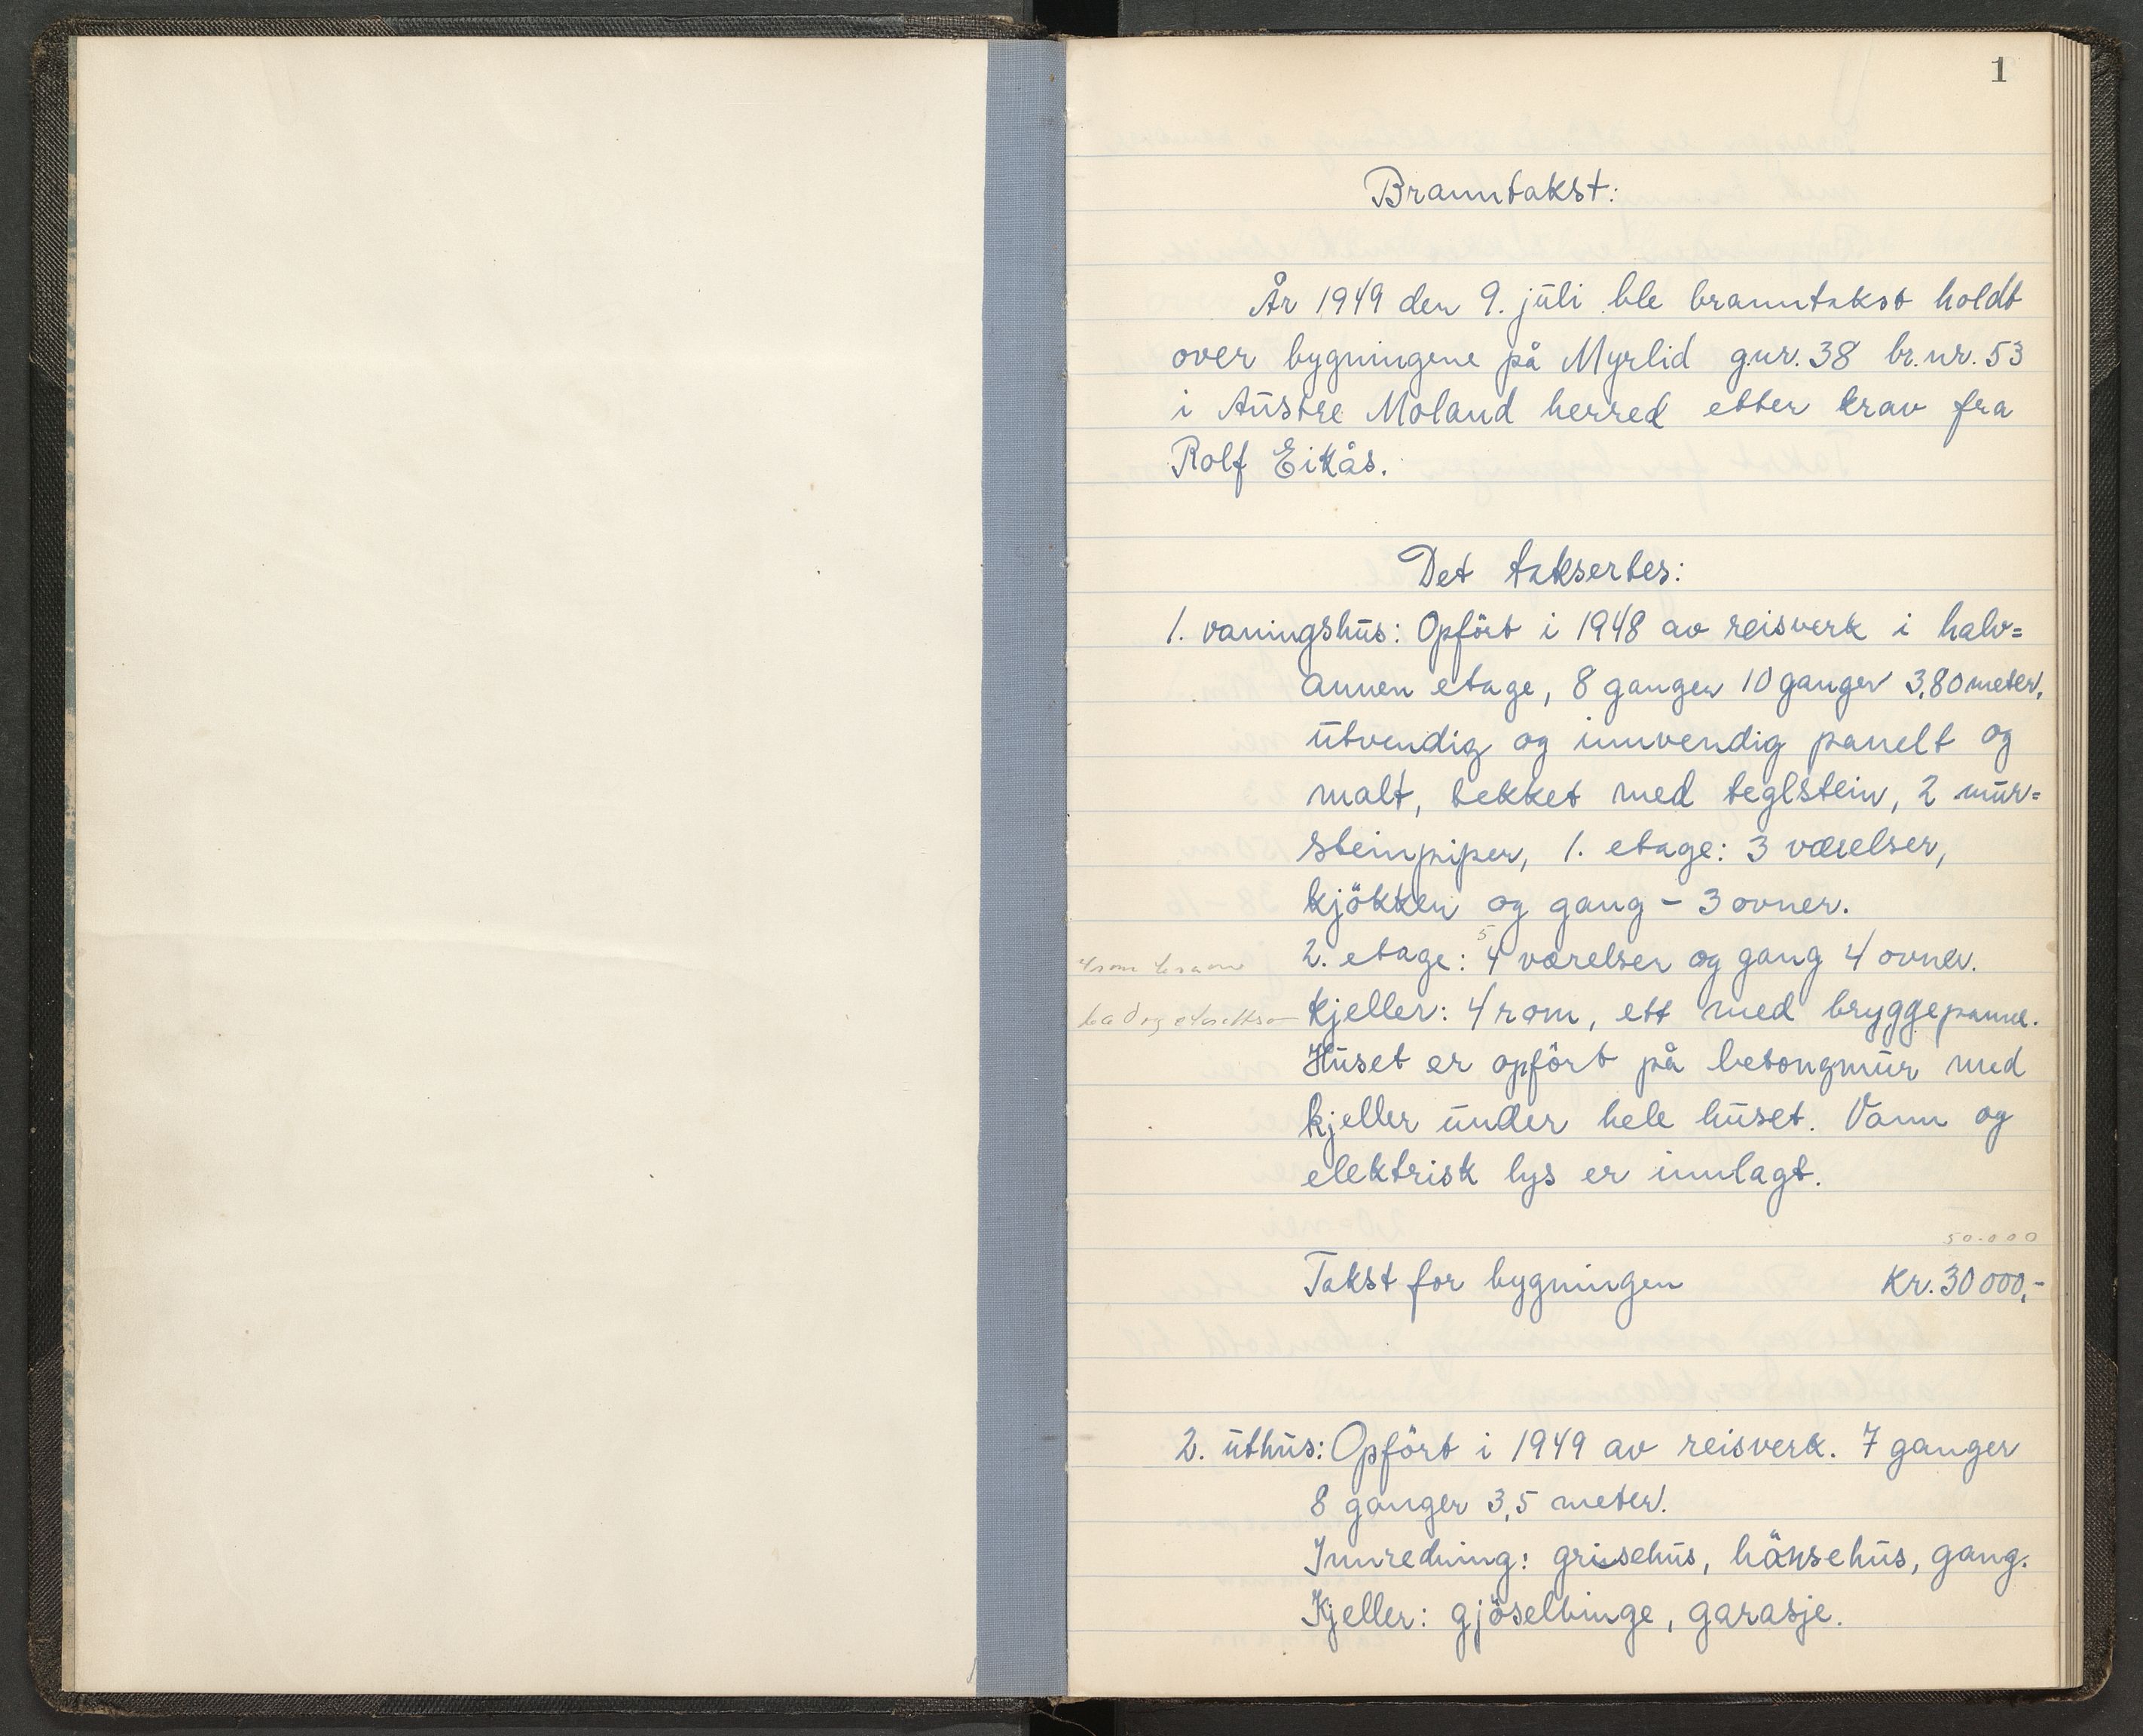 1
Branntakst:
År 1949 den 9. juli ble branntakst holdt
over bygningene på Myrlid g.nr. 38 br.nr. 53
i Austre Moland herred etter krav fra
Rolf Eikås.
Det taksertes:
1. vaningshus: Opfört i 1948 av reisverk i halv=
annen etage, 8 ganger 10 ganger 3,80 meter,
utvendig og innvendig panelt og
malt, tekket med teglstein, 2 mur=
steinpiper, 1. etage: 3 værelser,
kjökken og gang - 3 ovner.
5
2. etage: 4 værelser og gang 4 ovner.
bad og
kjeller: 4 rom, ett med bryggepanne.
Huset er opfört på betongmur med
kjeller under hele huset. Vann og
elektrisk lys er innlagt.
50.000
Takst for bygningen Kr. 30 000,-
2. uthus: Opfört i 1949 av reisverk. 7 ganger
8 ganger 3,5 meter.
Innredning: grisehus, hönsehus, gang.
Kjeller: gjöselbinge, garasje.